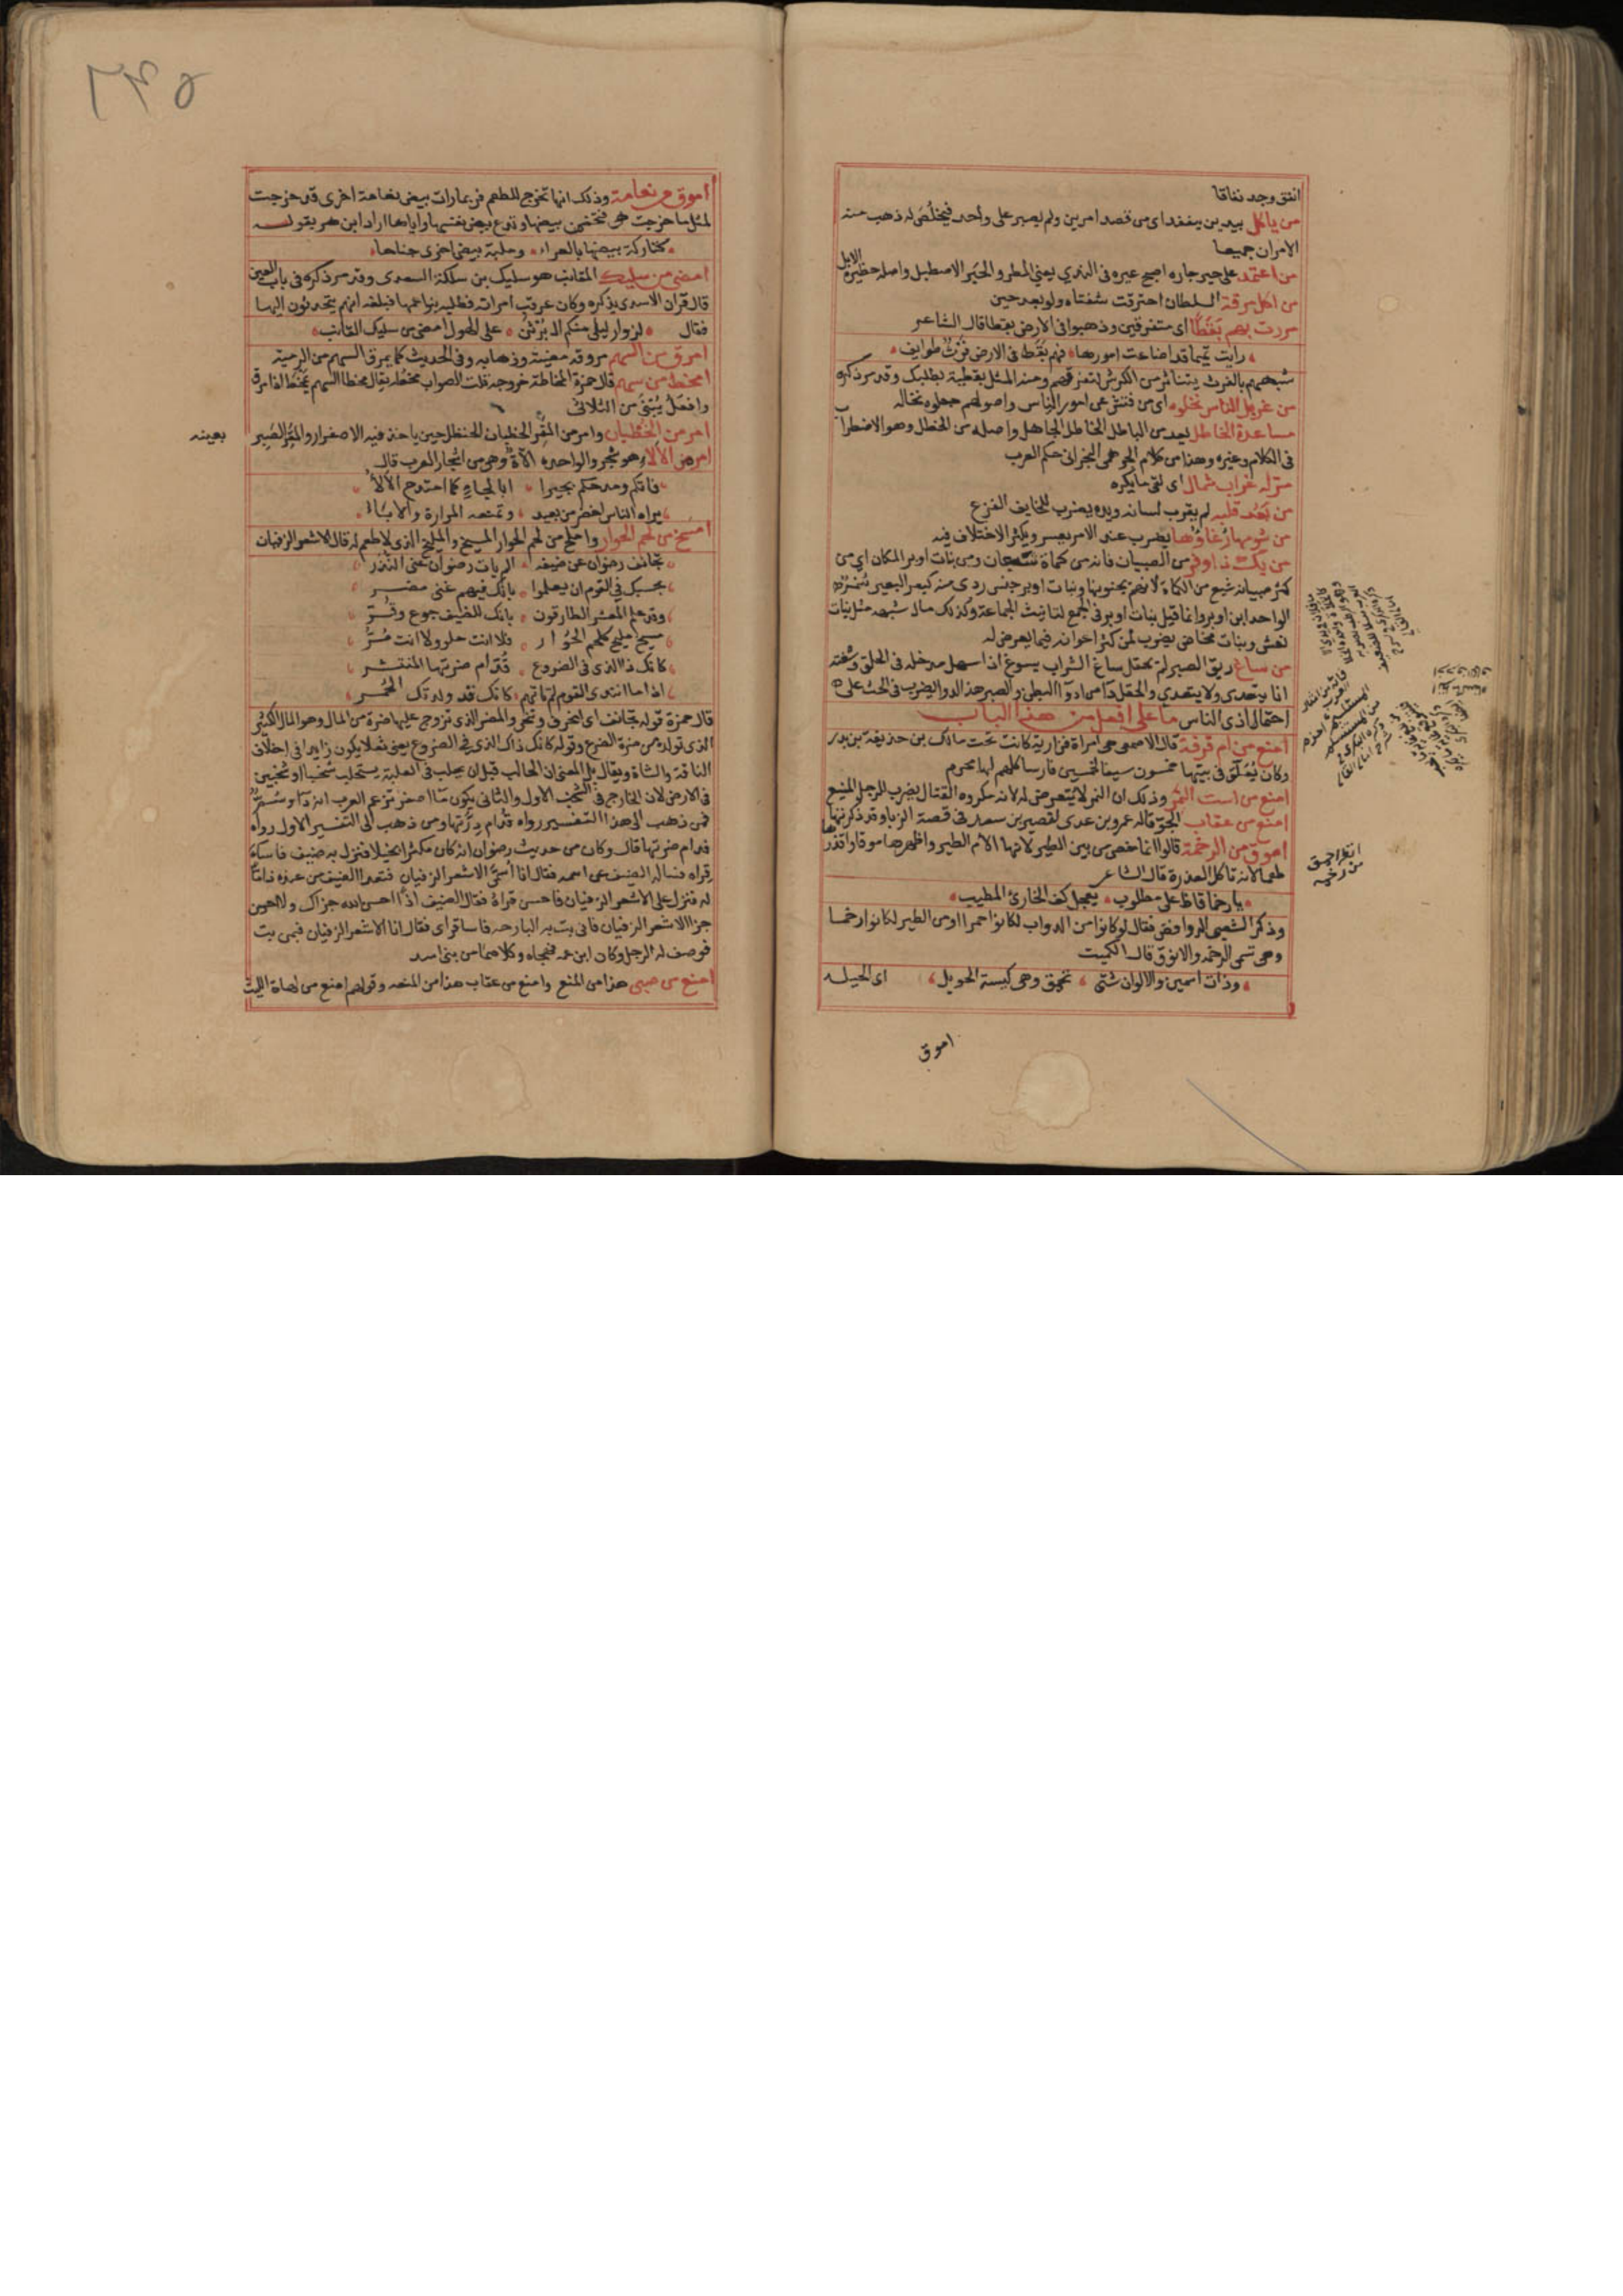 انفق وجد نفاقا
من ياكل بيدين ينفد اى من قصد امرين ولم يصبر على واحد فيخلص له ذهب منه
الامران جميعا
من اعتمد على حير جاره اصبح عيره فى الندي يعني المطر والحير الاصطبل واصله حظيرة الابل
من اكل مرقة السلطان احترقت شفتاه ولو بعد حين
مررت بهم بقطا اى متفرقين وذهبوا فى الارض بقطا قال الشاعر
رايت تميما قد اضاعت امورها فهم بقط فى الارض فرث طوايف
شبههم بالفرث يتناثر من الكرش لتفرقهم ومنه المثل بقطيه بطبك وقد مر ذكره
من غربل الناس نخلوه اى من فتش عن امور الناس واصولهم جعلوه نخاله
مساعدة الخاطل يعد من الباطل الخاطل الجاهل واصله من الخطل وهو الاضطراب
فى الكلام وغيره وهذا من كلام الجرهمى النجرانى حكم العرب
مر له غراب شمال اى لقى ما يكره
من بعد قلبه لم يقرب لسانه ويده يضرب للخايف الفزع
من شومها رغاؤها يضرب عند الامر يعسر ويكثر الاختلاف فيه
من يك ذا وفر من الصبيان فانه من كماة شبعان ومن بنات اوبر المكان اى من
كثر صبيانه شبع من الكماة لانهم يجنونها وبنات اوبر جنس ردى منه كبعر البعير
الواحد ابن اوبر وانما قيل بنات اوبر فى الجمع لتانيث الجماعة وكذلك ما شبهه مثل بنات
نعش وبنات مخاض يضرب لمن كثر اخوانه فيما يعرض له
من ساغ ريق الصبر لم يحقل ساغ الشراب يسوغ اذا سهل مدخله فى الحلق وسغته
انا يتعدى ولا يتعدى والحقل دآ من ادوآ البطن والصبر هذا الدوا يضرب فى الحث على
احتمال اذى الناس ما على افعل من هذا الباب
امنع من ام قرفة قال الاصمعى هى امراة فزارية كانت تحت مالك بن حذيفة بن بدر
وكان يعلق فى بيتها خمسون سيفا لخمسين فارسا كلهم لها محرم
امنع من است النمر وذلك ان النمر لا يتعرض له لانه مكروه القتال يضرب للرجل المنيع
امنع من عقاب الجو قاله عمرو بن عدى لقصير بن سعد فى قصة الزبا وقد ذكرتها
اموق من الرخمة قالوا انما خص من بين الطير لانها الأم الطير واظهرها موقا واقذرها
طعما لانه تاكل العذرة قال الشاعر
يا رخما قاظ على مطلوب يعجل كف الخارئ المطيب
وذكر الشعبى الروافض فقال لو كانوا من الدواب لكانوا حمرا او من الطير لكانوا رخما
وهى تسمى الرخمه والانوق قال الكميت
وذات اسمين والالوان شتى تحمق وهى كيسة الحويل اى الحيله
اموق
انظر احمق
من رخمه
اموق من نعامة وذلك انها تخرج للطعم فربما رات بيض نعامة اخرى قد خرجت
لمثل ما خرجت هى فتحضن بيضها وتدع بيض نفسها واياها اراد ابن هرمة بقوله
كتاركة بيضها بالعراء وملبسة بيض اخرى جناحا
امضى من سليك المقانب هو سليك بن سلكة السعدى وقد مر ذكره فى باب العين
قال قران الاسدى يذكره وكان عرقب امراته فطلبه بنو عمها فبلغه انهم يتحدثون اليها
فقال لزوار ليلى منكم ال برثن على الهول امضى من سليك المقانب
امرق من السهم مروقه مضيه وذهابه وفى الحديث كما يمرق السهم من الرمية
امخط من سهم قال حمزة المخاطة خروجه قلت الصواب مخطه يقال مخطا السهم يمخط اذا مرق
وافعل يبنى من الثلاثى
امر من الخطبان وامر من المقر الخطبان الحنظل حين ياخذ فيه الاصفرار والمقر الصبر
بعينه
امر من الالاء وهو شجر والواحده الآة وهى من اشجار العرب قال
فانكم ومدحكم بجيرا ابا لجاء كما امتدح الالاء
يراه الناس اخضر من بعيد وتمنعه المرارة والاباء
امسخ من لحم الحوار واملخ من لحم الحوار المسيخ والمليخ الذى لا طعم له قال الاشعر الزفيان
تجانف رضوان عن ضيفه الم يات رضوان عنى النذر
بحسبك فى القوم ان يعلموا بانك فيهم غنى مضر
وقد علم المعشر الطارقون بانك للضيف جوع وقر
مسيخ مليخ كلحم الحوار فلا انت حلو ولا انت مر
كانك ذاك الذى فى الضروع قدام ضرتها المنتشر
اذا ما انتدى القوم لم تاتهم كانك قد ولدتك الحمر
قال حمزة قوله تجانف اى انحرف وتنحى والمضر الذى تزوج عليها ضرة من المال وهو المال الكثير
الذى تولده من ضرة الضرع وقوله كانك ذاك الذى فى الضروع يعنى ثعلا يكون زايدا فى اخلاف
الناقة والشاة ويقال بل المعنى ان الحالب قبل ان يحلب فى العلبة يستحلب شخبا او شخبين
فى الارض لان الخارج فى الشخب الاول والثانى يكون مآ اصفر تزعم العرب انه دآ وسم
فمن ذهب الى هذا التفسير رواه قدام درتها ومن ذهب الى التفسير الاول رواه
قدام ضرتها قال وكان من حديث رضوان انه كان مكثرا بخيلا فنزل به ضيف فاسآء
قراه فساله الضيف عن اسمه فقال انا اسمى الاشعر الزفيان فغدا الضيف من عنده ذاما
له فنزل على الاشعر الزفيان فاحسن قراه فقال الضيف اذا احسن الله جزاك ولا احسن
جزا الاشعر الزفيان فانى بت به البارحه فاسا قراى فقال انا الاشعر الزفيان فبمن بت
فوصف له الرجل وكان ابن عمه فهجاه وكلاهما من بنى اسد
امنع من صبى هذا من المنع وامنع من عقاب هذا من المنعه وقولهم امنع من لهاة الليث